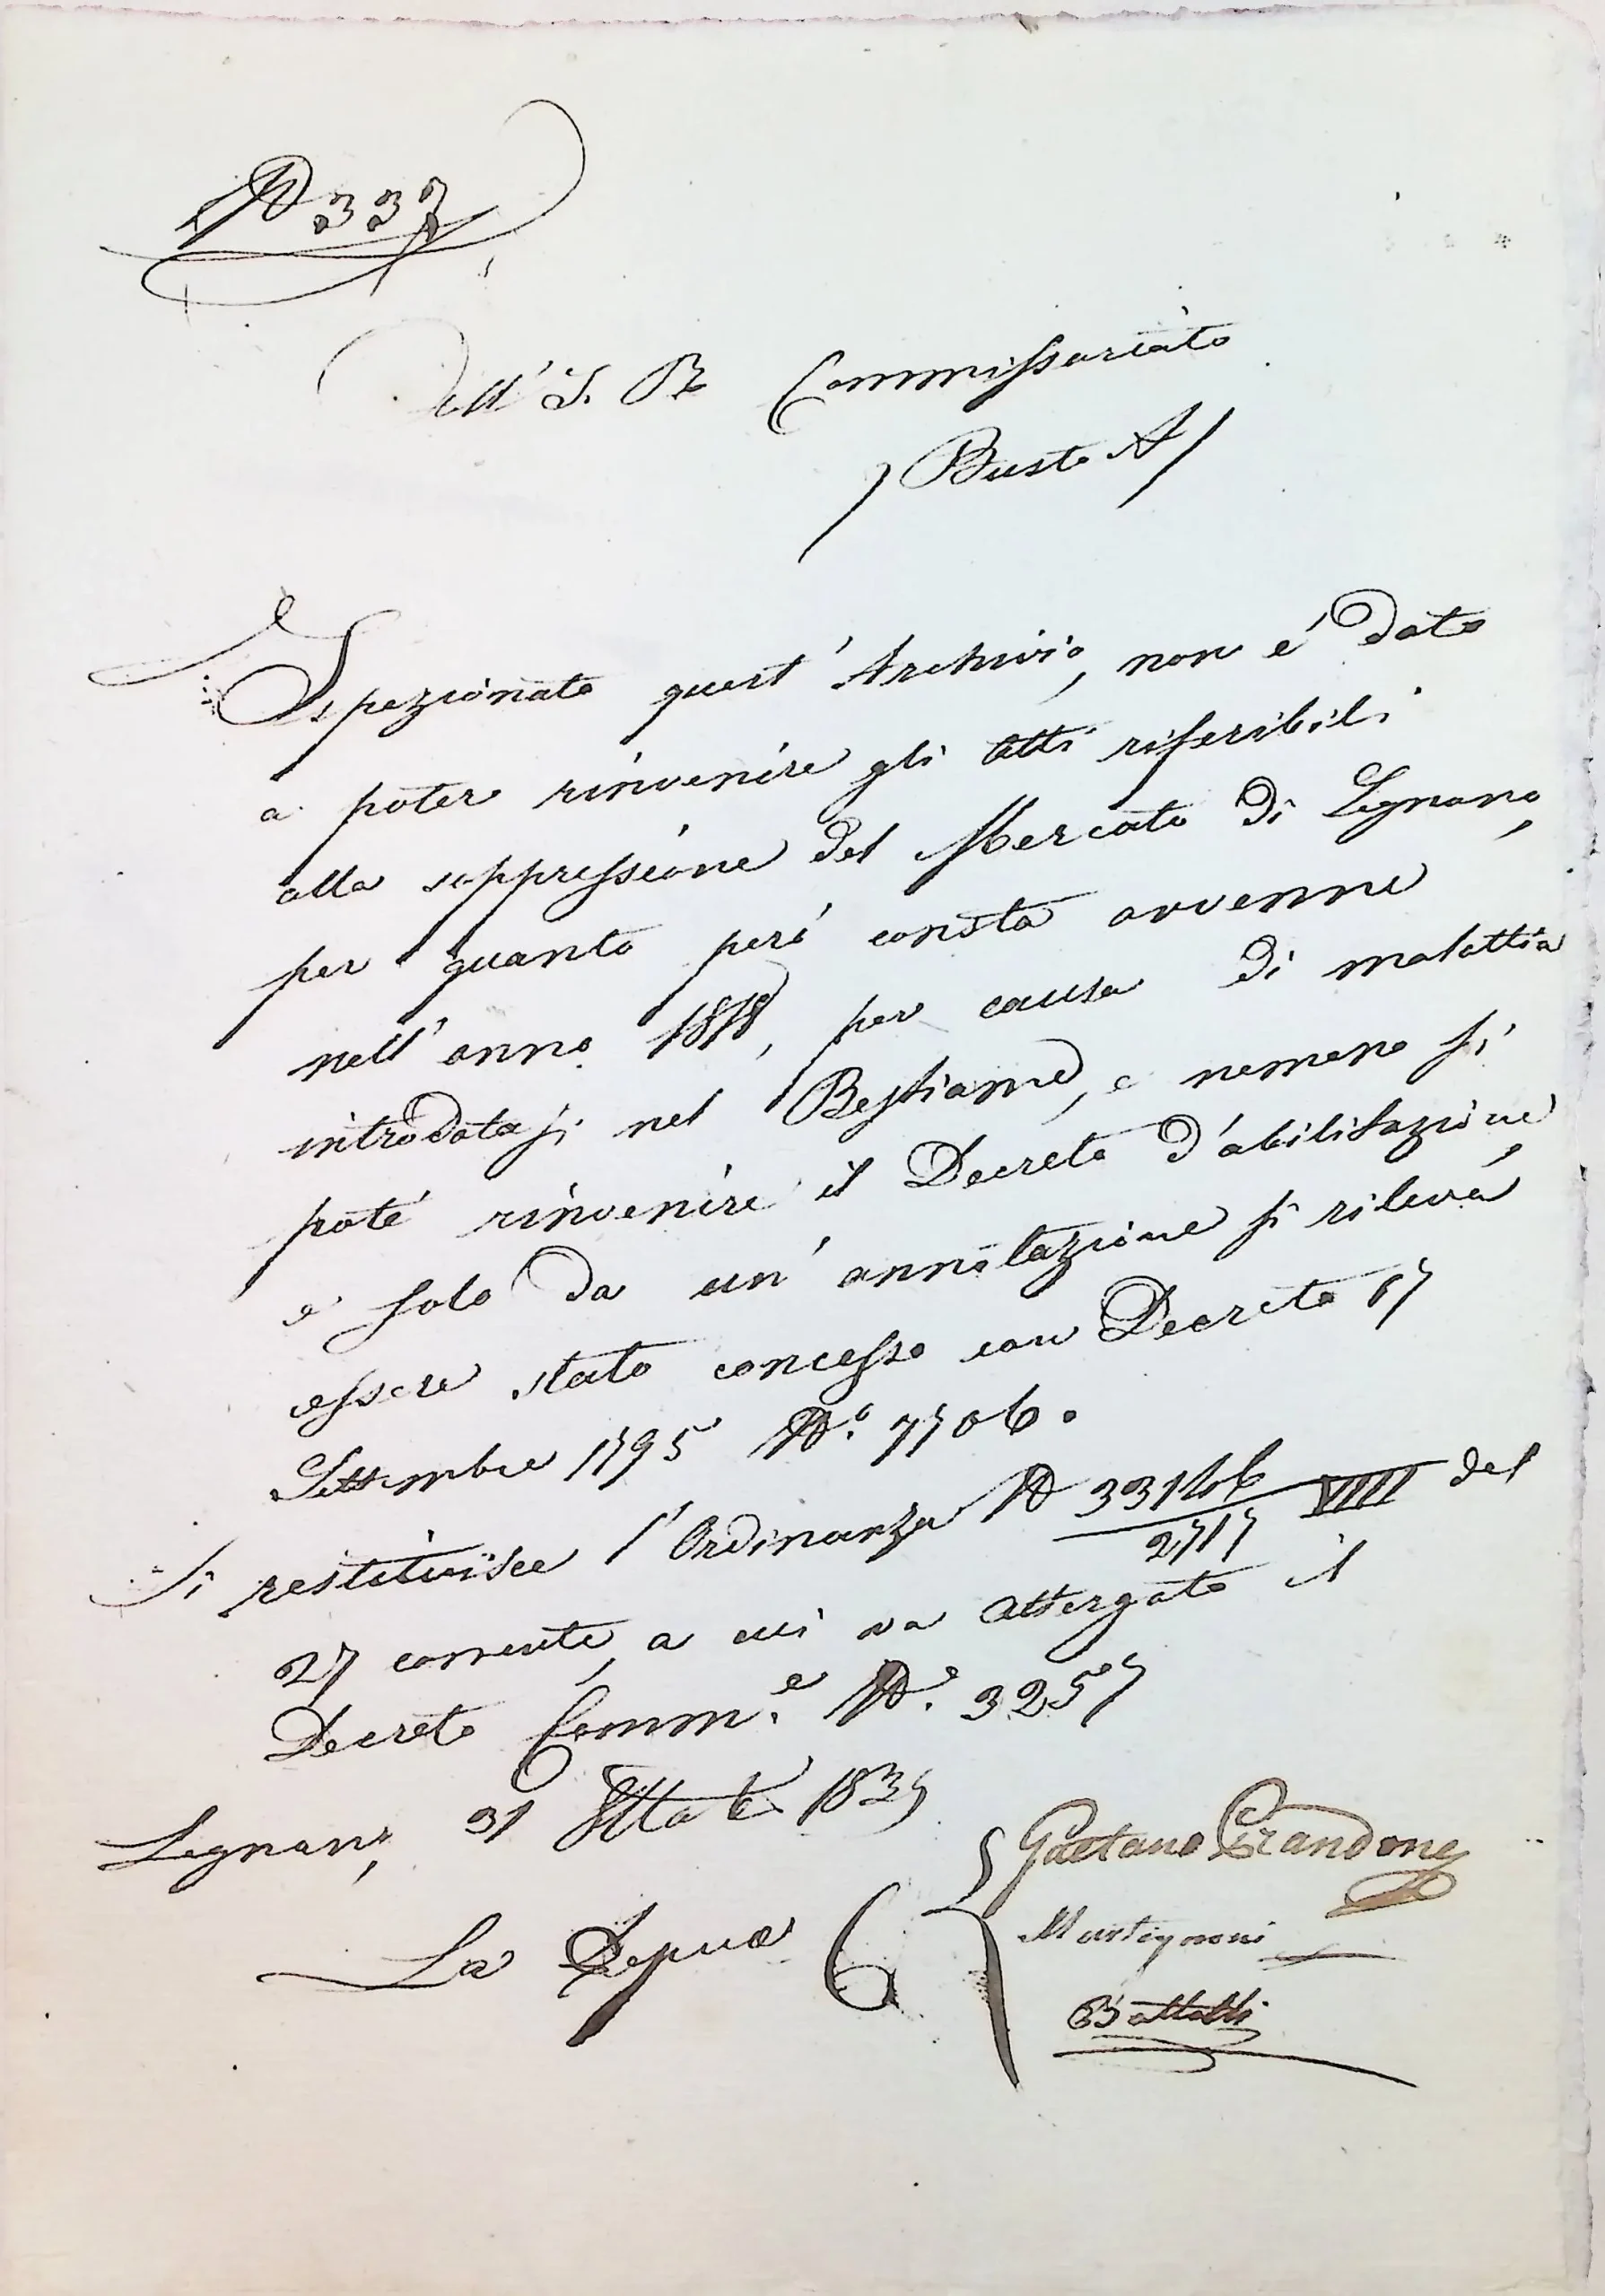 N 337
Dell' I. R. Commissariato
/ Busto A /
Ispezionato quest' Archivio, non é dato
a poter rinvenire gli atti riferibili
alla soppressione del Mercato di Legnano,
per quanto peró consta avvenne
nell' anno 1818, per causa di malattia
introdotasi nel Bestiame, e nemeno si
poté rinvenire il Decreto d'abilitazione,
e solo da un' annotazione si rileva
essere stato concesso con Decreto 17
Settembre 1795 N.° 7706.
Si restituisce l'Ordinanza N 33146/2717 VIII del
27 corrente, a cui va attergato il
Decreto Comm.e N.° 3257
Legnano, 31 1837
La Depue
Gaetano Grandone
Martignoni